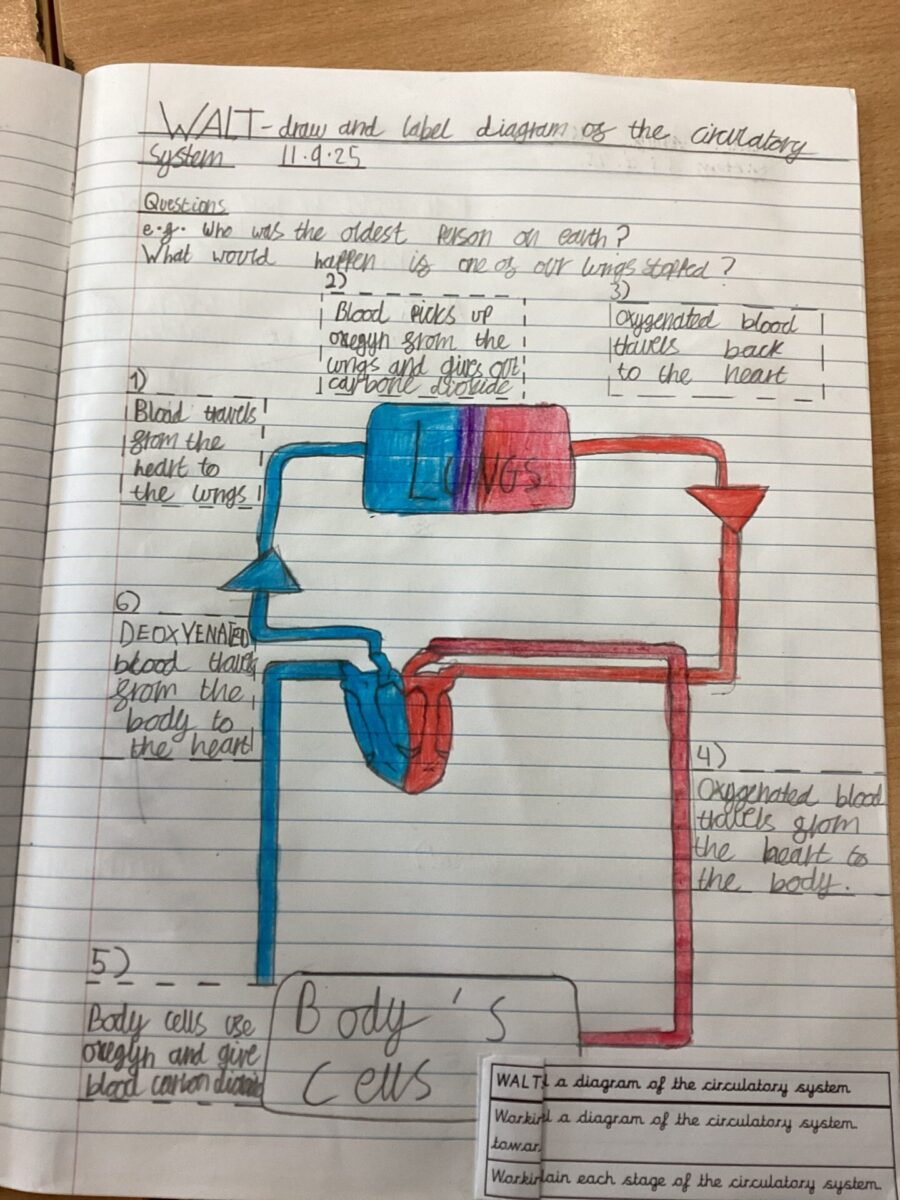 WALT - draw and label diagram of the circulatory
system 11.9.25
Questions
e.g. Who was the oldest person on earth?
What would happen is one of our lungs stopped?
1)
Blood travels
from the
heart to
the lungs
2)
Blood picks up
oxegyn from the
lungs and gives out
carbone dioxide
3)
Oxygenated blood
travels back
to the heart
LUNGS
6)
DEOXYENATED
blood travels
from the
body to
the heart
4)
Oxygenated blood
travels from
the heart to
the body.
5)
Body cells use
oxegyn and give
blood carbon dioxide
Body's
Cells
WALT: a diagram of the circulatory system
Workin a diagram of the circulatory system
towar
Workin lain each stage of the circulatory system.